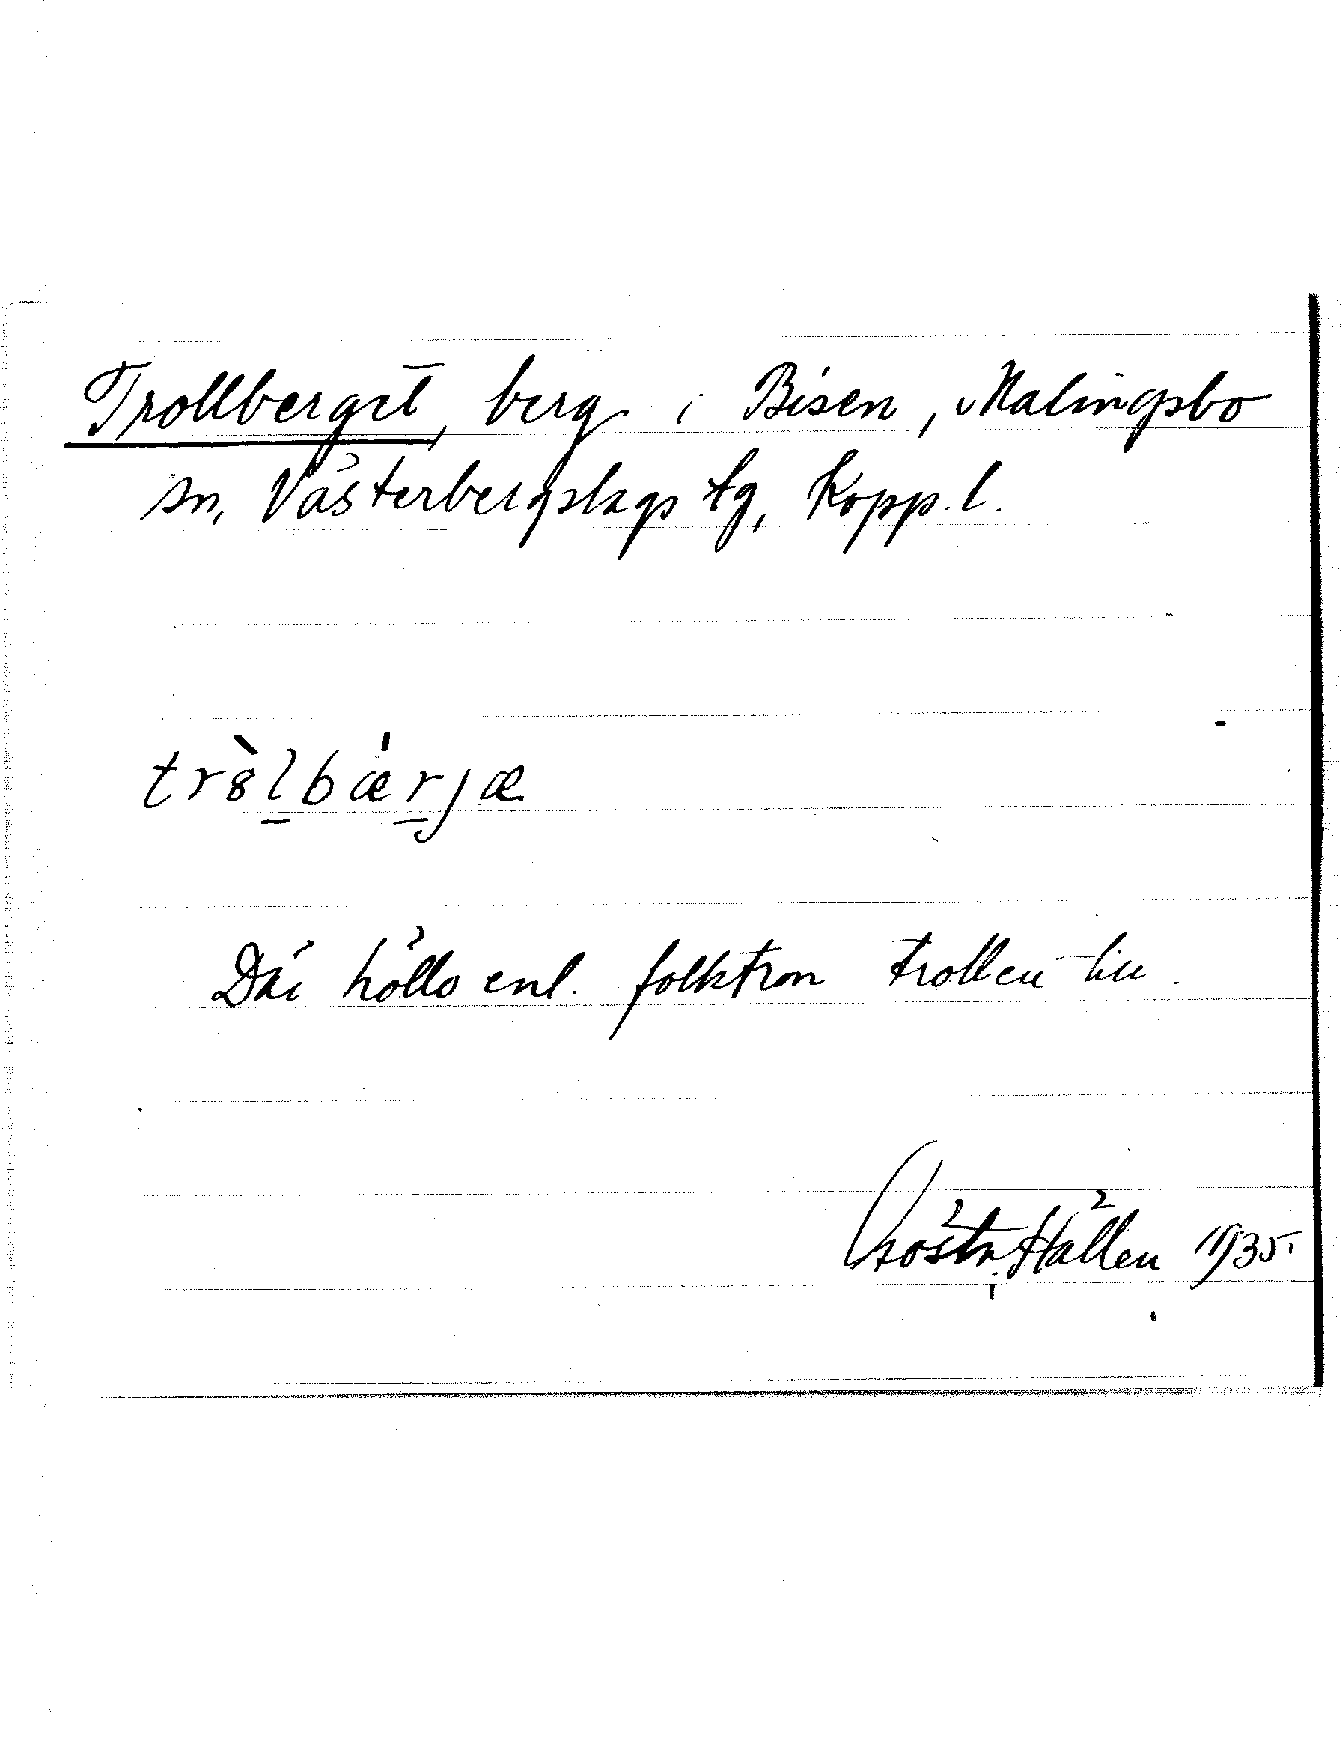 Trollberget, berg i Bisen, Malingsbo
sn, Västerbergslags tg, Kopp. l.
trɞ̀lbǽrjæ
Där höllo enl. folktron trollen till.
Gösta Hallén 1935.